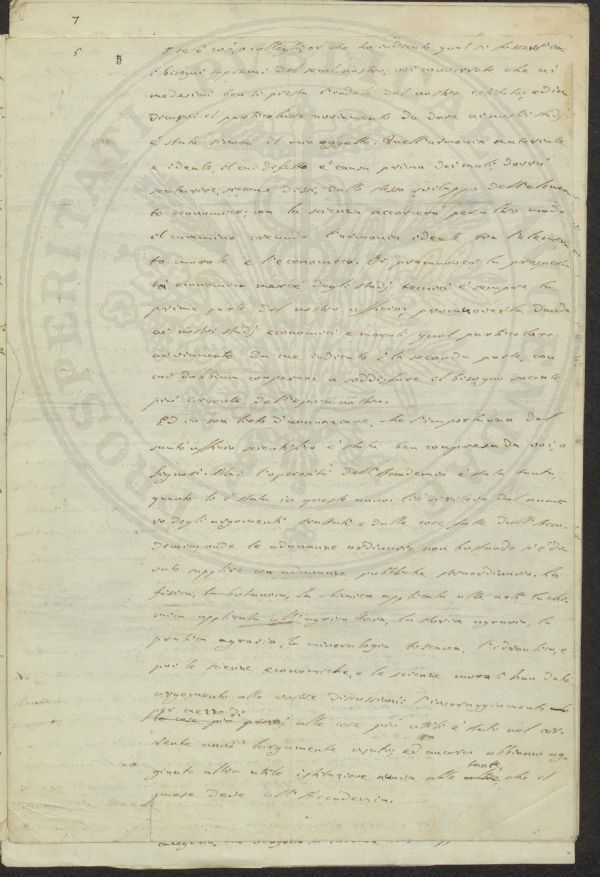 7
5
E se è così, o colleghi, or che ho indicato qual si fossero
i bisogni supremi del secol nostro, voi converrete che ai
medesimi ben si presta l'indole del nostro istituto; ed in
dicarvi il particolare avviamento da dare ai nostri studj
è stato sinora il mio oggetto. Quell'armonia materiale
e ideale, il cui difetto è causa prima dei mali, dovrà
scaturire, siccome dissi, dallo stesso sviluppo dell'elemen-
to economico; ma la scienza accorcerà per altro modo
il cammino creando l'armonia ideale tra l'elemen-
to morale e l'economico. Or promuover la prosperi-
tà economica mercé degli studj tecnici è sempre la
prima parte del nostro ufficio; promuoverla dando
ai nostri studj economici e morali quel particolare
avviamento da me indicato è la seconda parte, con
cui dobbiamo cooperare a soddisfare il bisogno sociale
più urgente dell'epoca nostra.
Ed io son lieto d'annunziare, che l'importanza del
santo ufficio scientifico è stata ben compresa da voi, o
Signori. Mai l'operosità dell'Accademia è stata tanta
quanto lo è stata in questo anno. Ciò si rileva dal nume-
ro degli argomenti trattati e dalle cose fatte dall'Acca-
demia; onde le adunanze ordinarie non bastando si è do-
vuto supplire con adunanze pubbliche straordinarie. La
fisica, la botanica, la chimica applicata alle arti, la chi-
mica applicata all'agricoltura, la storia agraria, la
pratica agraria, la mineralogia toscana, l'idraulica, e
poi le scienze economiche, e le scienze morali han dato
argomento alle vostre discussioni; l'incoraggiamento
per mezzo di
alle cose più utili è stato nel cor-
rente anno largamente usato; ed ancora abbiamo ag-
giunto altra utile istituzione nuova alle tante, che il
paese deve all'Accademia.